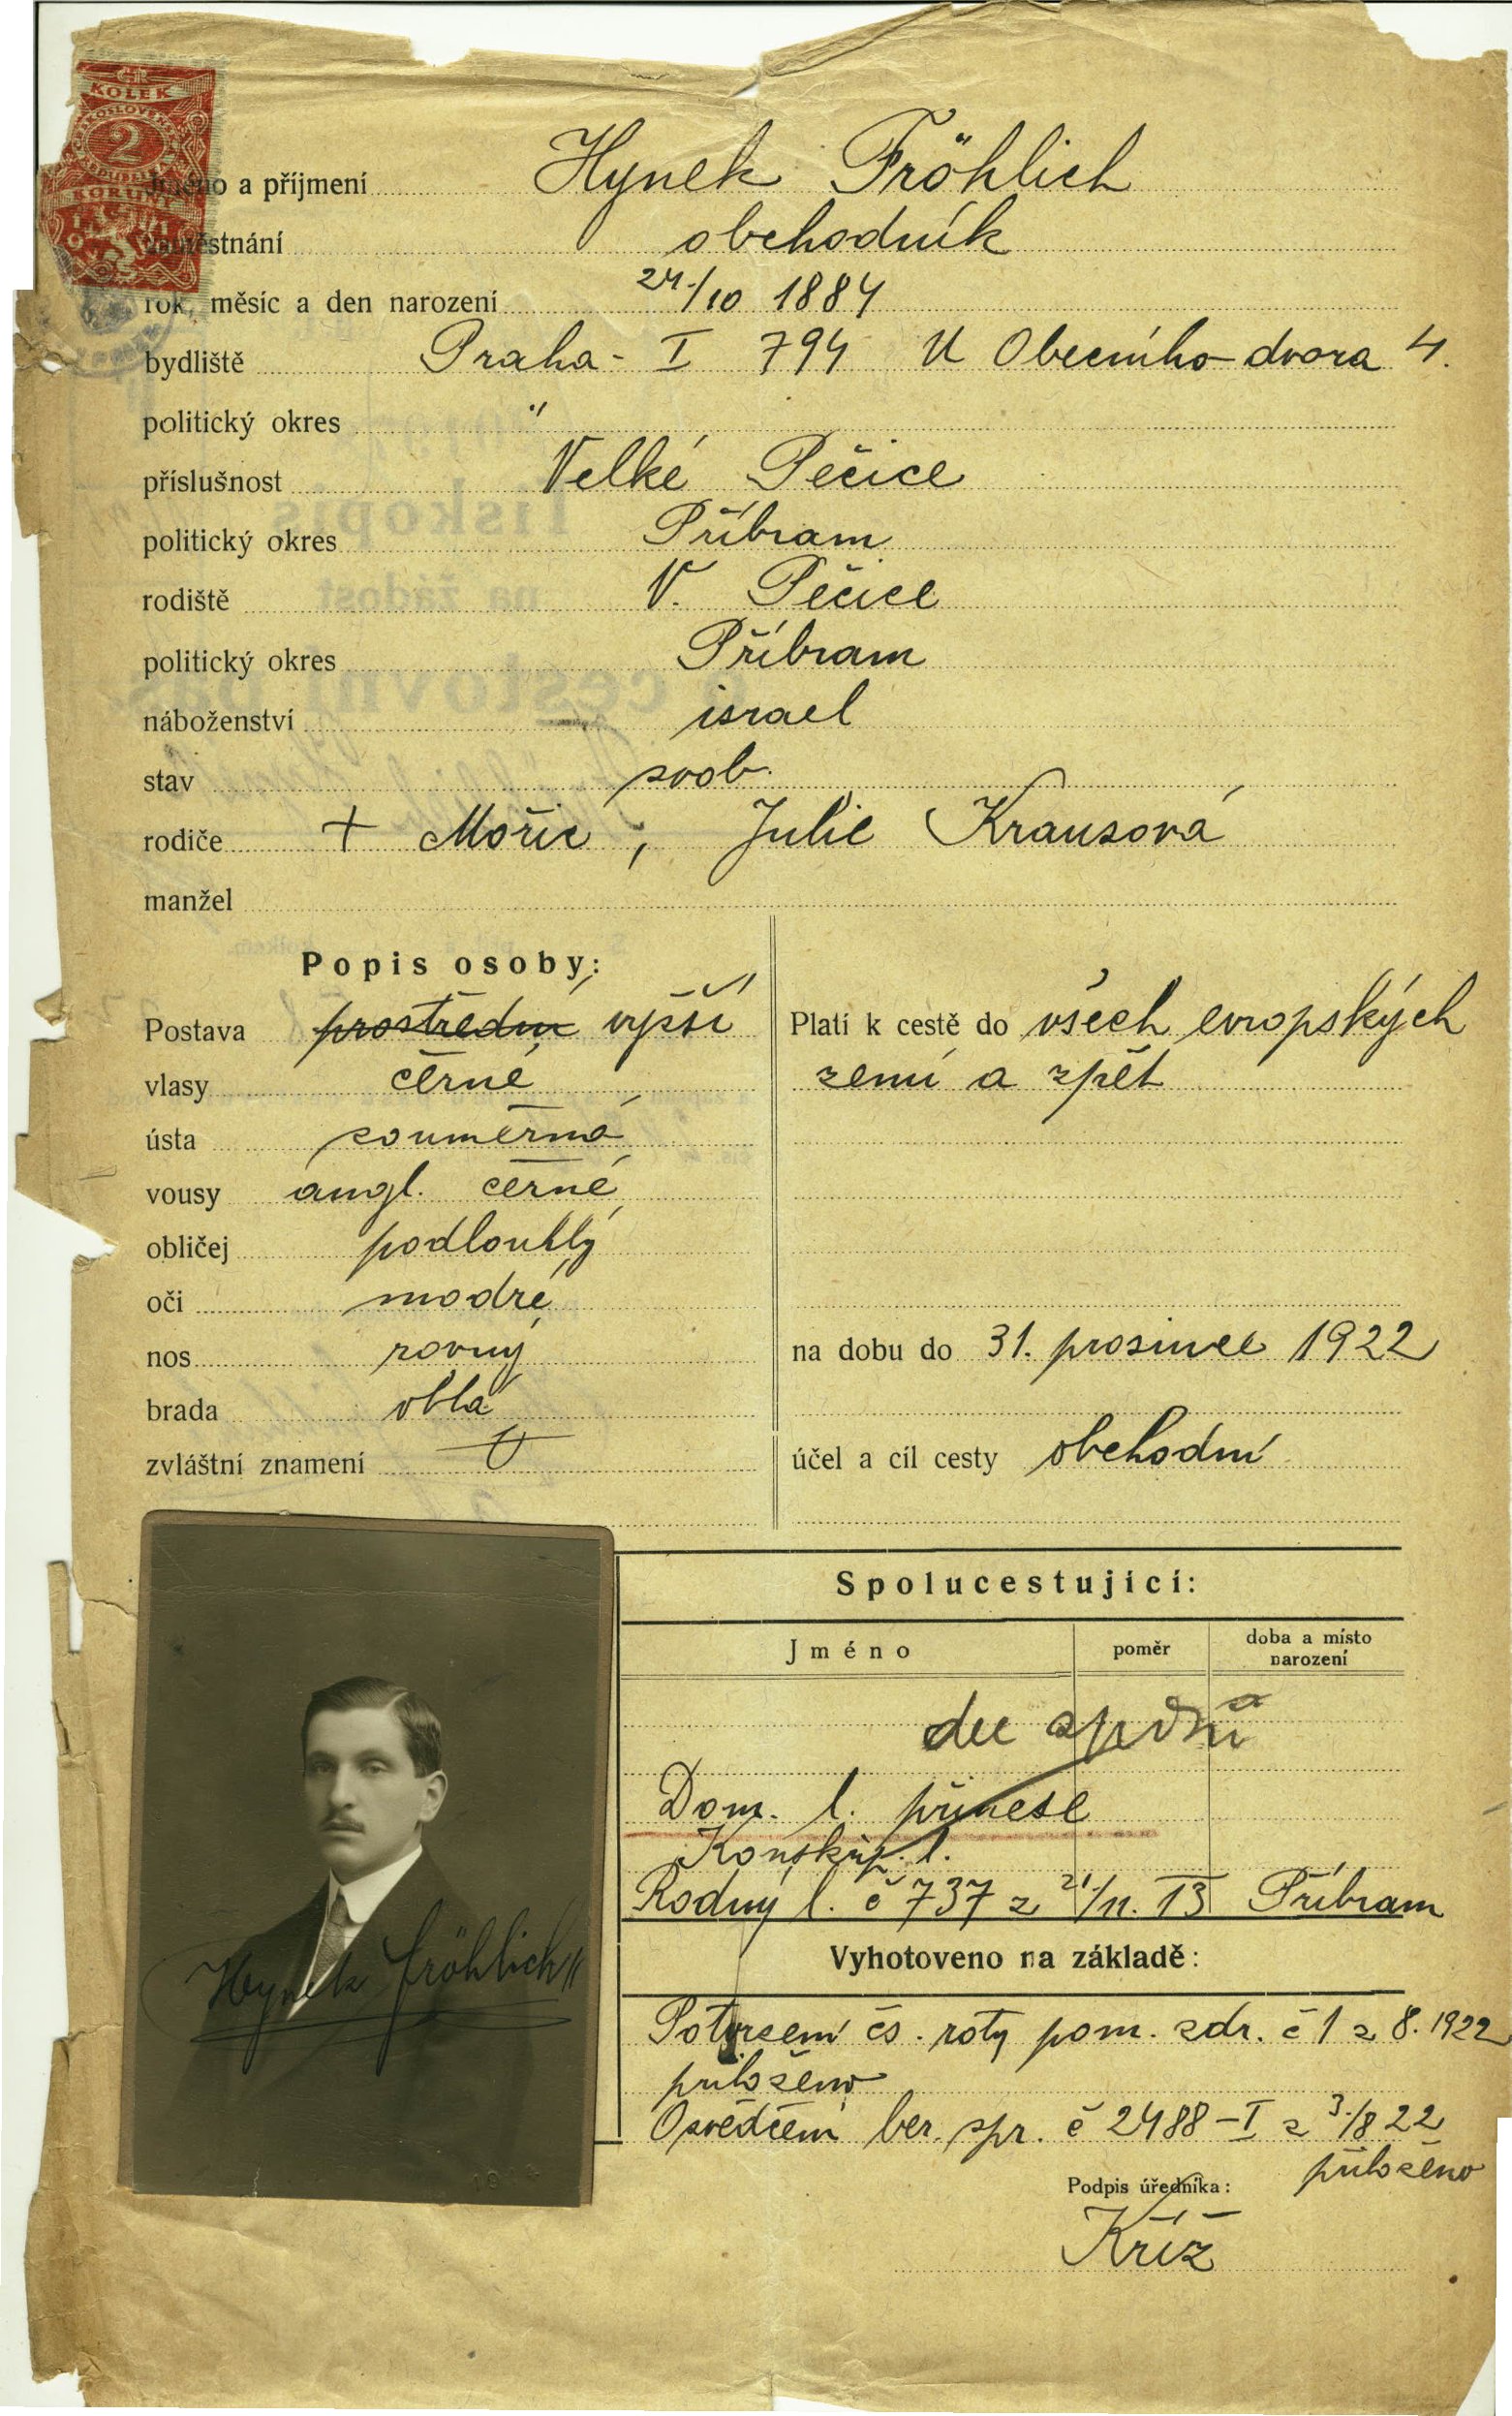 KOLEK
2
Jméno a příjmení Hynek Fröhlich
zaměstnání obchodník
rok, měsíc a den narození 24./10 1884
bydliště Praha - I 794 U Obecního dvora 4.
politický okres "
příslušnost Velké Pečice
politický okres Příbram
rodiště V. Pečice
politický okres Příbram
náboženství israel
stav svob.
rodiče + Mořic, Julie Krausová
manžel
Popis osoby:
Postava prostřední vyšší
vlasy černé
ústa souměrná
vousy angl. černé
obličej podlouhlý
oči modré
nos rovný
brada oblá
zvláštní znamení
Platí k cestě do všech evropských
zemí a zpět
na dobu do 31. prosince 1922
účel a cíl cesty obchodní
Spolucestující:
Jméno poměr doba a místo narození
Dom. l. přinese
Konskrip. l.
Rodný l. č 737 z 21/11. 13 Příbram
Vyhotoveno na základě:
Potvrzení čs. roty pom. zdr. č 1 z 8. 1922
přiloženo
Osvědčení ber. spr. č 2488-I z 3./8 22
přiloženo
Podpis úředníka:
Kříž
Hynek Fröhlich